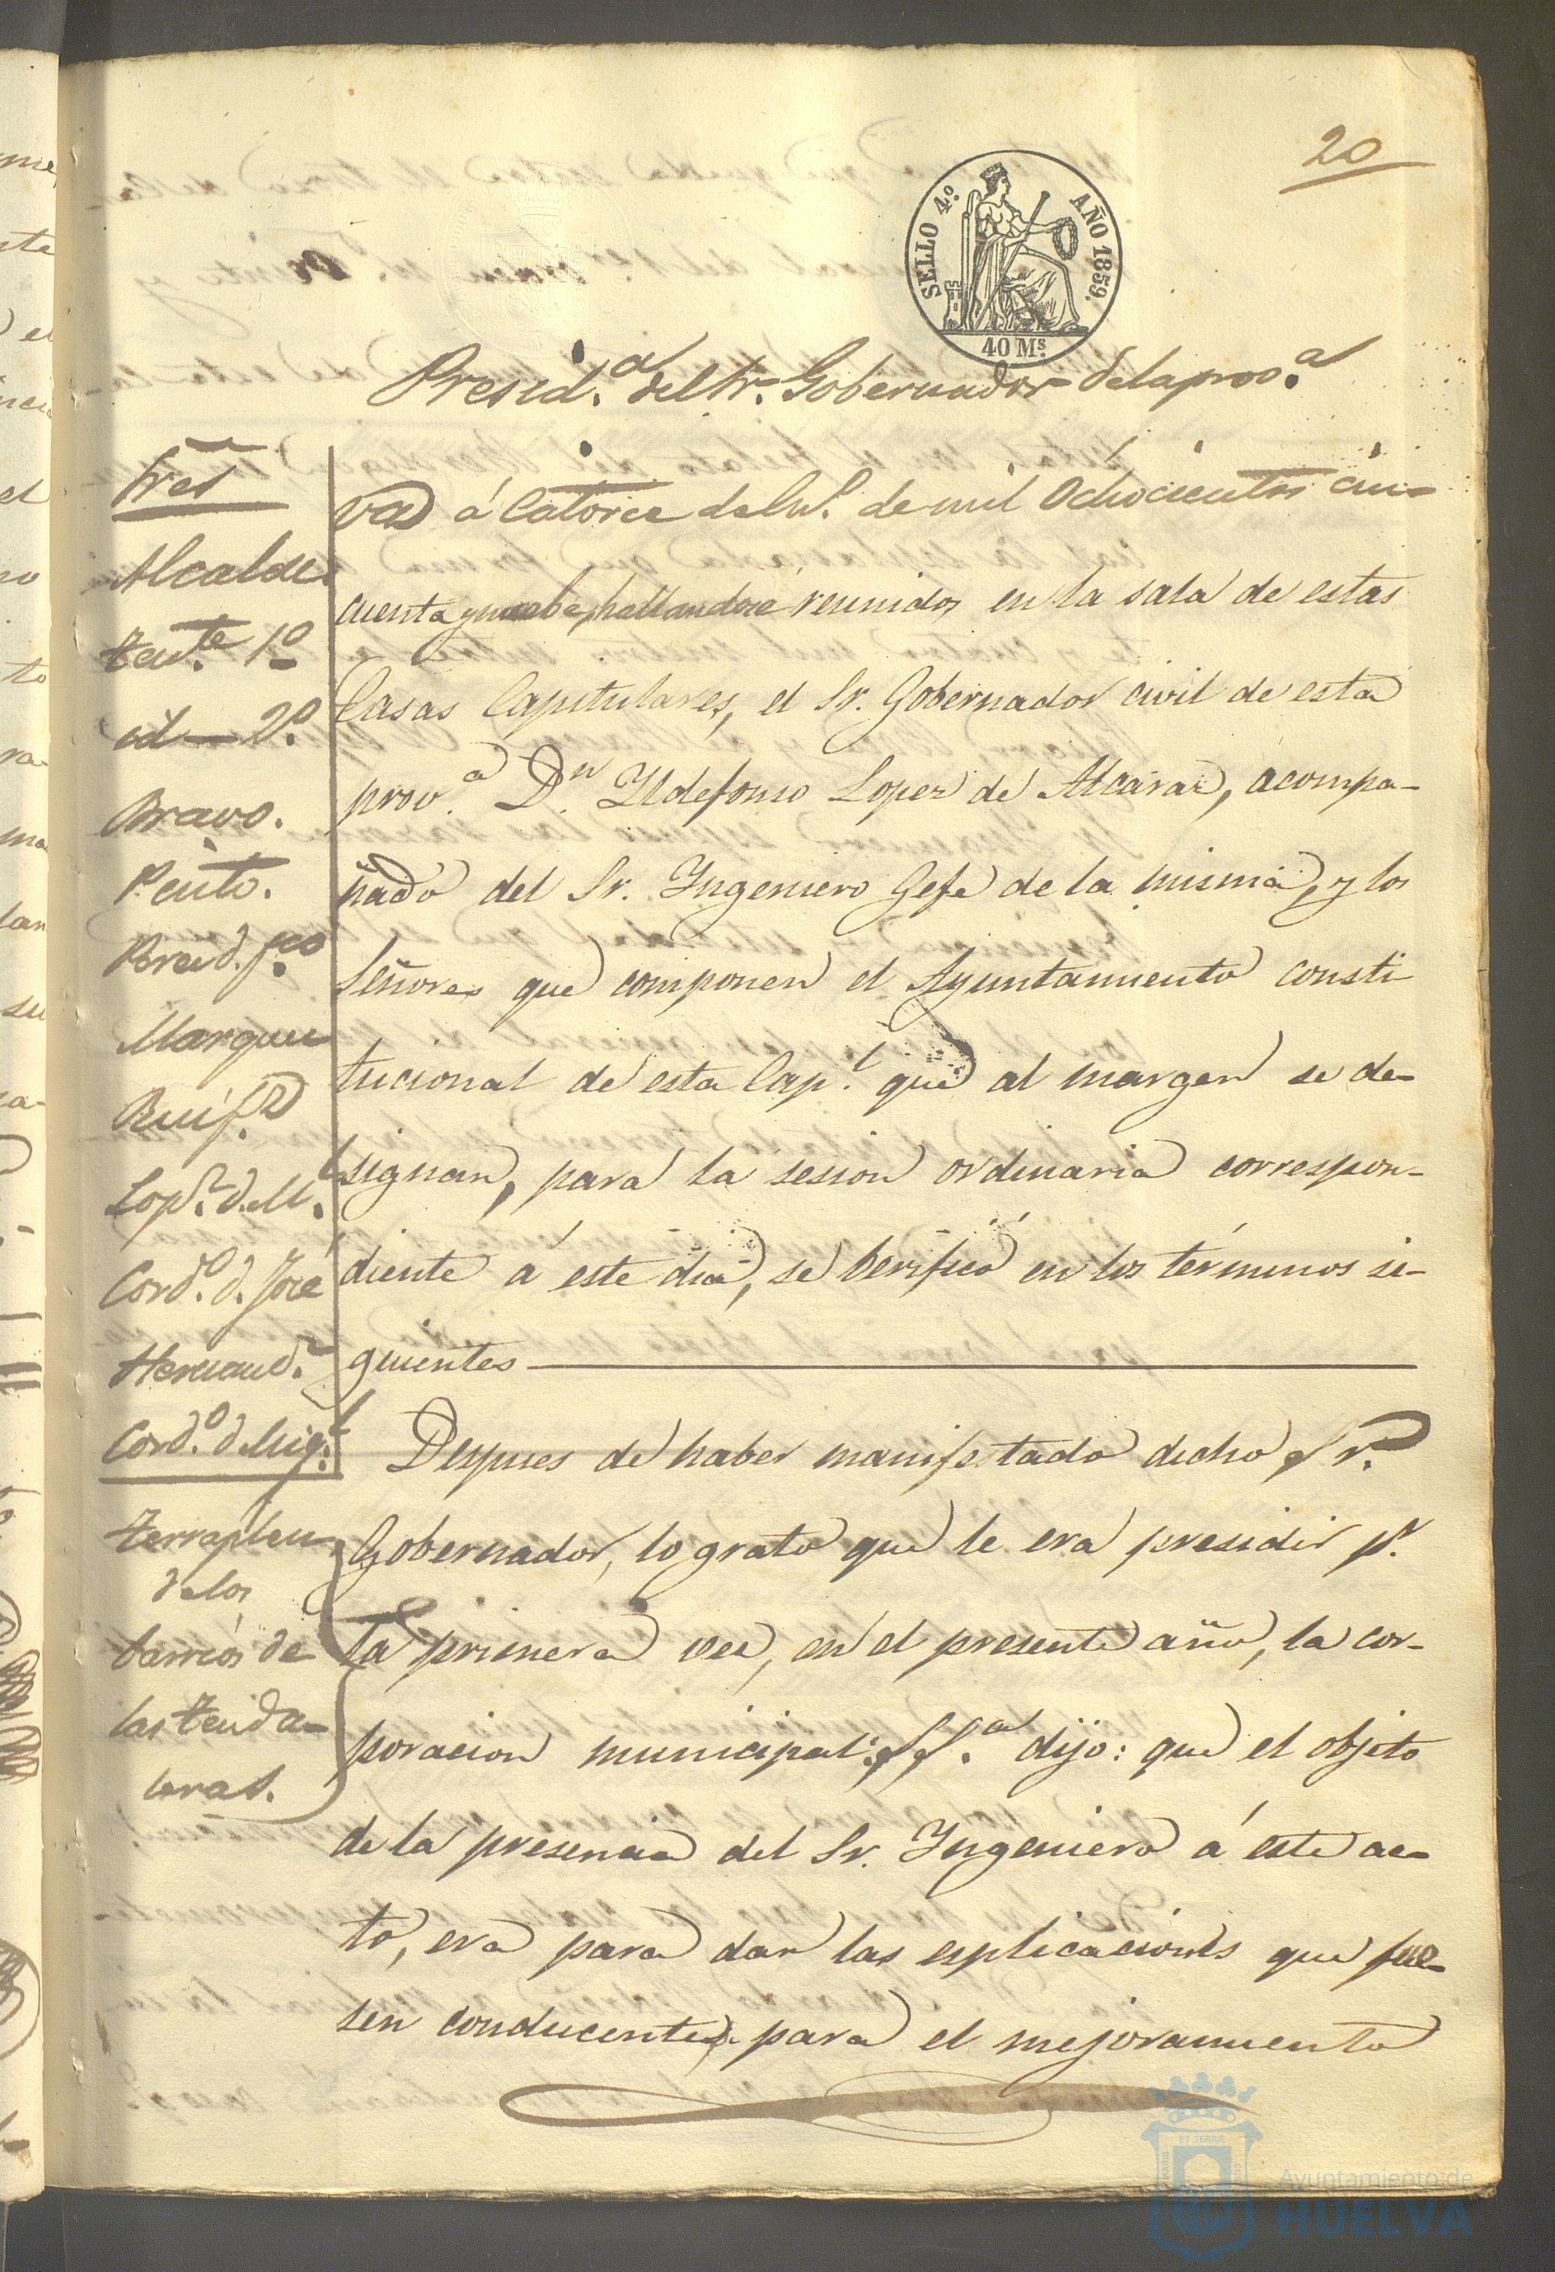 20
SELLO 4.º AÑO 1859.
40 Ms.
Presid.a del Sr. Gobernador de la prov.a
Sres
Alcalde
Tente. 1º
id — 2º
Bravo.
Pinto.
Marquez
Ruiz
Lopz. d. M.l
Cord.o d. José
Hernand.z
Cord.o d. Mig.l
terraplen
de los
barrios de
las tenda-
leras.
á Catorce de En.º de mil Ochocientos cin-
cuenta y nuebe, hallandose reunidos en la sala de estas
Casas Capitulares, el Sr. Gobernador civil de esta
prov.a Dn. Yldefonso Lopez de Alcaraz, acompa-
ñado del Sr. Yngeniero Gefe de la misma, y los
Señores que componen el Ayuntamiento consti
tucional de esta Cap.l que al margen se de-
signan, para la sesion ordinaria correspon-
diente á este dia, se berificó en los términos si-
guientes
Despues de haber manifestado dicho Sr.
Gobernador, lo grato que le era presidir pr.
la primera vez, en el presente año, la cor-
poracion municipal: S. S.a dijo: que el objeto
de la presencia del Sr. Yngeniero á este ac-
to, era para dar las esplicaciones que fue-
sen conducentes para el mejoramiento
ET TERRÆ
Ayuntamiento de
HUELVA